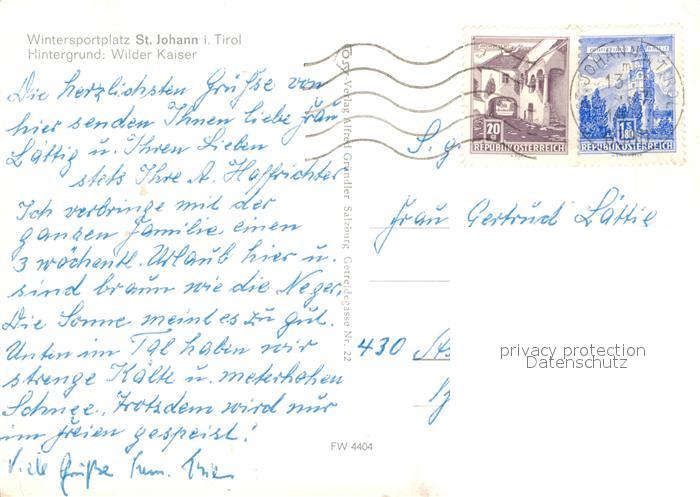 Wintersportplatz St. Johann i. Tirol
Hintergrund: Wilder Kaiser
Die herzlichsten Grüsse von
hier senden Ihnen liebe Frau
Lättig u. Ihren Lieben
stets Ihre A. Haffrichter
Ich verbringe mit der
ganzen Familie einen
3 wöchentl. Urlaub hier u.
sind braun wie die Neger.
Die Sonne meint es zu gut.
Unten im Tal haben wir
strenge Kälte u. meterhohen
Schnee. Trotzdem wird nur
im Freien gespeist!
Viele Grüße
Cosy-Verlag Alfred Gründler Salzburg Getreidegasse Nr. 22
FW 4404
20 g
REPUBLIK ÖSTERREICH
S 1.80
REPUBLIK ÖSTERREICH
ST. JOHANN
13.
S. g.
Frau Gertrud Lättig
430
privacy protection
Datenschutz